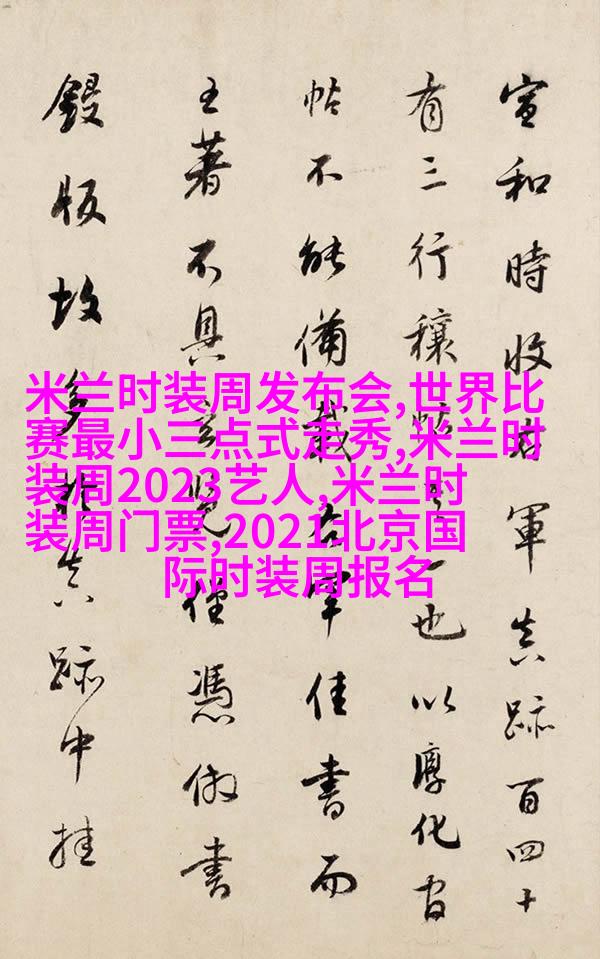 宣和時收右軍真跡百四十
有三行穰帖一也以淳化官
帖不能備載右軍佳書而
王著不具玄覽僅憑倣書
鋟版故多於真跡中挂
米兰时装周发布会,世界比
赛最小三点式走秀,米兰时
装周2023艺人,米兰时
装周门票,2021北京国
际时装周报名